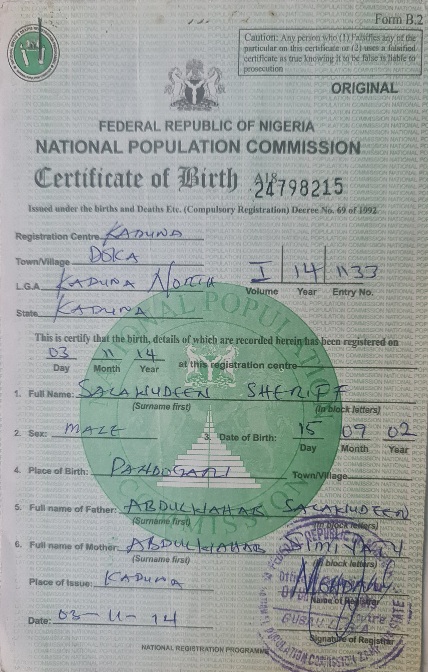 Form B.2
Caution: Any person who (1) Falsifies any of the
particular on this certificate or (2) uses a falsified
certificate as true knowing it to be false is liable to
prosecution
ORIGINAL
FEDERAL REPUBLIC OF NIGERIA
NATIONAL POPULATION COMMISSION
Certificate of Birth 24798215
Issued under the births and Deaths Etc. (Compulsory Registration) Decree No. 69 of 1992
Registration Centre KADUNA
Town/Village DOKA
L.G.A KADUNA NORTH I 14 1133
Volume Year Entry No.
State KADUNA
This is certify that the birth, details of which are recorded herein has been registered on
03 11 14 at this registration centre
Day Month Year
1. Full Name: SALAWUDEEN SHERIFF
(Surname first) (In block letters)
2. Sex: MALE 3. Date of Birth: 15 09 02
Day Month Year
4. Place of Birth: Town/Village
5. Full name of Father: ABDULWAHAB SALAWUDEEN
(Surname first) (In block letters)
6. Full name of Mother: ABDULWAHAB
(Surname first) (In block letters)
Place of Issue: KADUNA
Name of Registrar
Date: 03-11-14
Signature of Registrar
NATIONAL REGISTRATION PROGRAMME